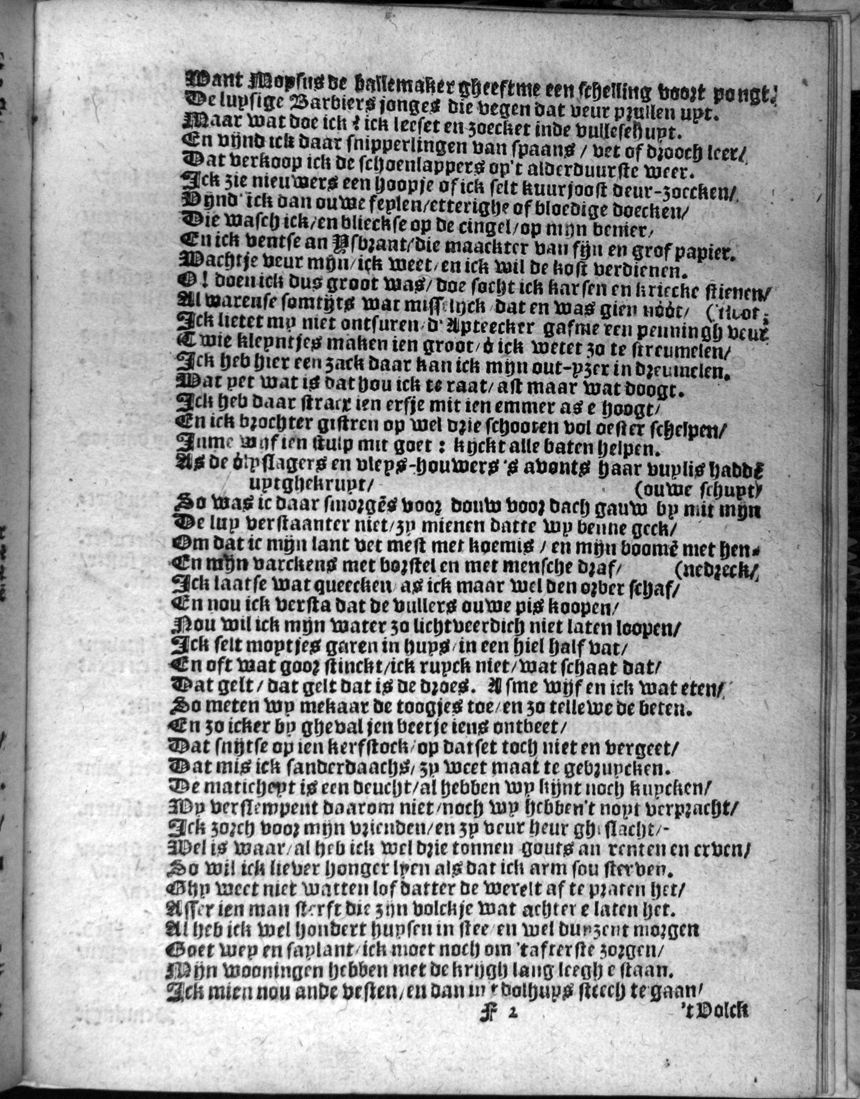 Want Mopsus de ballemaker gheeftme een schelling voort pongt.
De luysige Barbiers jonges die vegen dat veur prullen uyt.
Maar wat doe ick? ick leeset en zoecket inde vullesehupt.
En vijnd ick daar snipperlingen van spaans / vet of drooch leer/
Dat verkoop ick de schoenlappers op't alderduurste weer.
Ick zie nieuwers een hoopje of ick selt kuurjoost deur-zoecken/
Vijnd' ick dan ouwe feylen/etterighe of bloedige doecken/
Die wasch ick/en blieckse op de cingel/op mijn benier/
En ick ventse an Ysbrant/die maackter van fijn en grof papier.
Wachtje veur mijn/ick weet/en ick wil de kost verdienen.
O! doen ick dus groot was/doe socht ick karsen en kriecke stienen/
Al warense somtijts wat misselyck/dat en was gien nôôt/ ('tloot;
Ick lietet my niet ontsuren/d'Apteecker gafme een penningh veur
Twie kleyntjes maken ien groot/ô ick wetet zo te streumelen/
Ick heb hier een zack daar kan ick mijn out-yzer in dreumelen.
Wat yet wat is dat hou ick te raat/ast maar wat doogt.
Ick heb daar stracx ien ersje mit ien emmer as e hoogt/
En ick brochter gistren op wel drie schooten vol oester schelpen/
Inme wijf ien stulp mit goet: kijckt alle baten helpen.
As de ôlyslagers en vleys-houwers 's avonts haar vuylis haddē
uytghekruyt/ (ouwe schuyt/
So was ic daar smorgēs voor douw voor dach gauw by mit mijn
De luy verstaanter niet/zy mienen datte wy benne geck/
Om dat ic mijn lant vet mest met koemis/en mijn boomē met hen-
En mijn varckens met borstel en met mensche draf/ (nedreck/
Ick laatse wat queecken/as ick maar wel den orber schaf/
En nou ick versta dat de vullers ouwe pis koopen/
Nou wil ick mijn water zo lichtveerdich niet laten loopen/
Ick selt moytjes garen in huys/in een hiel half vat/
En oft wat goor stinckt/ick ruyck niet/wat schaat dat/
Dat gelt/dat gelt dat is de droes. Asme wijf en ick wat eten/
So meten wy mekaar de toogjes toe/en zo tellewe de beten.
En zo icker by gheval jen beetje iens ontbeet/
Dat snijtse op ien kerfstock/op datset toch niet en vergeet/
Dat mis ick sanderdaachs/zy weet maat te gebruycken.
De maticheyt is een deucht/al hebben wy kijnt noch kuycken/
Wy verslempent daarom niet/noch wy hebben't noyt verpracht/
Ick zorch voor mijn vrienden/en zy veur heur gheslacht/-
Wel is waar/al heb ick wel drie tonnen gouts an renten en erven/
So wil ick liever honger lyen als dat ick arm sou sterven.
Ghy weet niet watten lof datter de werelt af te praten het/
Asser ien man sterft die zijn volckje wat achter e laten het.
Al heb ick wel hondert huysen in stee/en wel duyzent morgen
Goet wey en saylant/ick moet noch om 'tafterste zorgen/
Mijn wooningen hebben met de krijgh lang leegh e staan.
Ick mien nou ande vesten/en dan in't dolhuys steech te gaan/
F 2 't Volck